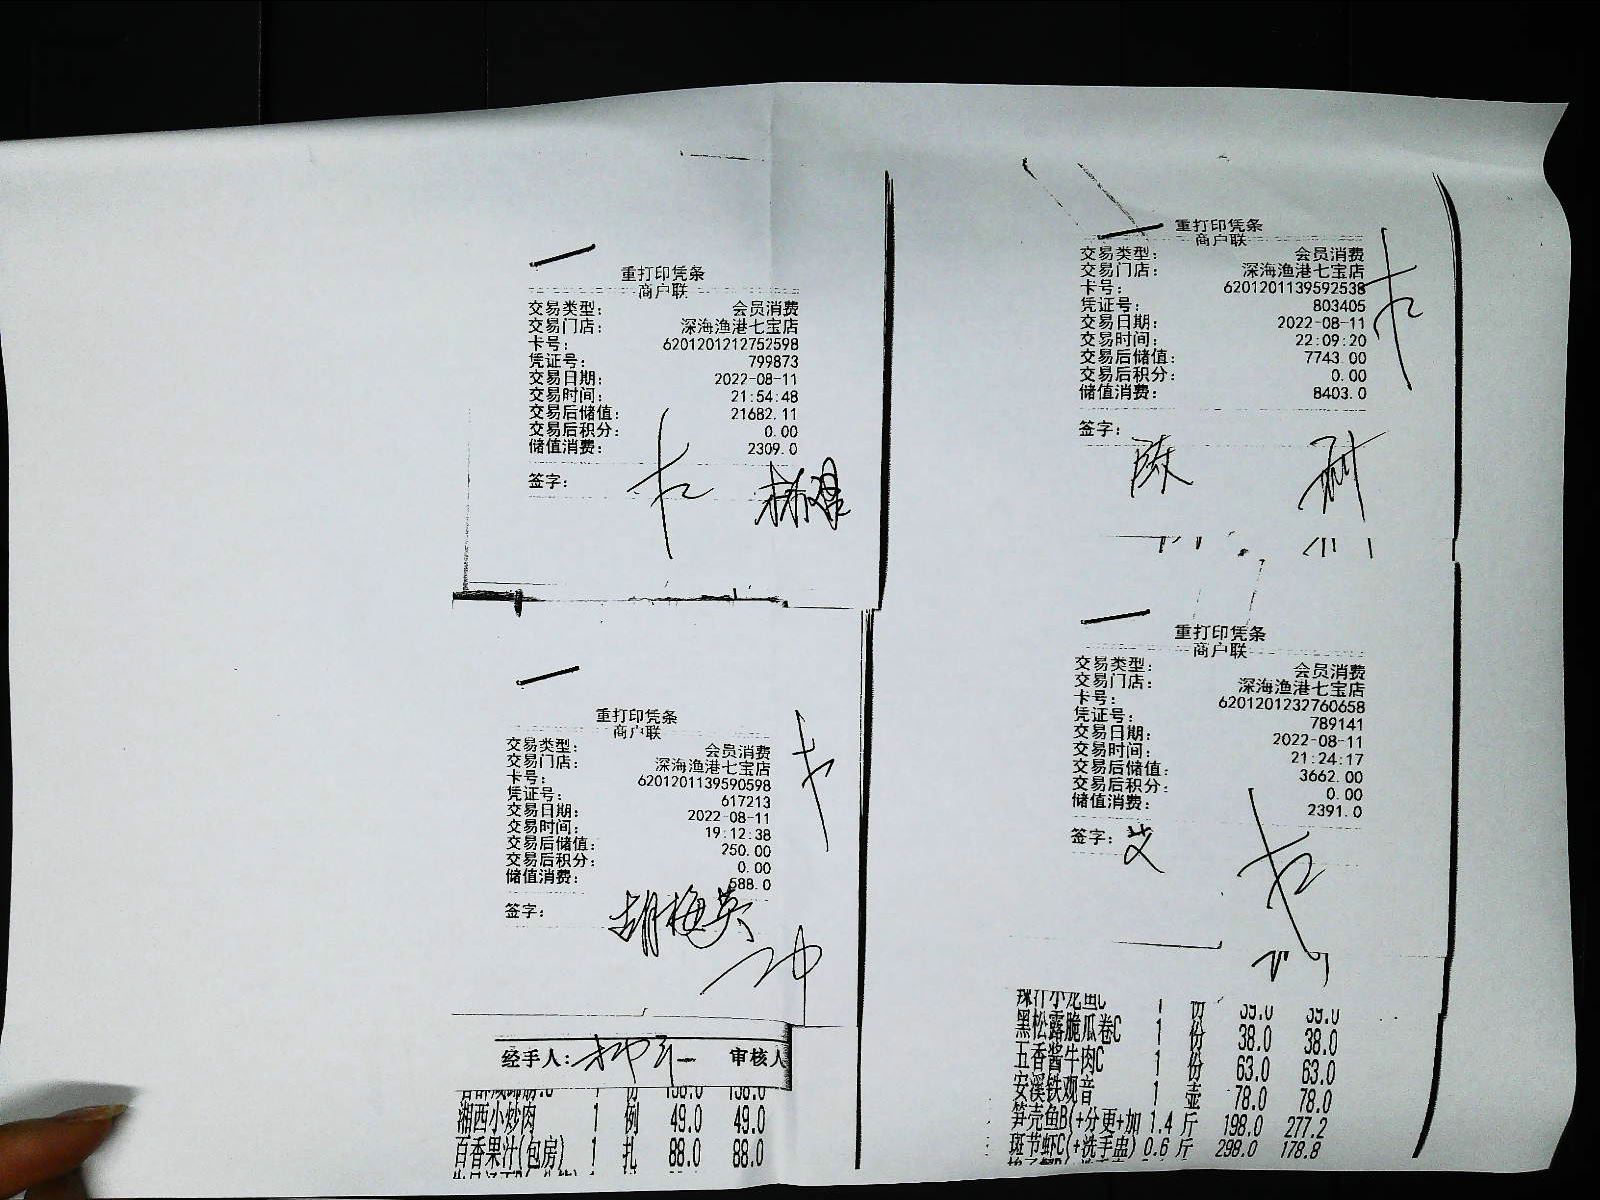 重打印凭条
商户联
交易类型： 会员消费
交易门店： 深海渔港七宝店
卡号： 6201201212752598
凭证号： 799873
交易日期： 2022-08-11
交易时间： 21:54:48
交易后储值： 21682.11
交易后积分： 0.00
储值消费： 2309.0
签字：
重打印凭条
商户联
交易类型： 会员消费
交易门店： 深海渔港七宝店
卡号： 6201201139590598
凭证号： 617213
交易日期： 2022-08-11
交易时间： 19:12:38
交易后储值： 250.00
交易后积分： 0.00
储值消费： 588.0
签字： 胡梅英
经手人： 审核人
湘西小炒肉 1 例 49.0 49.0
百香果汁(包房) 1 扎 88.0 88.0
重打印凭条
商户联
交易类型： 会员消费
交易门店： 深海渔港七宝店
卡号： 6201201139592538
凭证号： 803405
交易日期： 2022-08-11
交易时间： 22:09:20
交易后储值： 7743.00
交易后积分： 0.00
储值消费： 8403.0
签字：
陈
重打印凭条
商户联
交易类型： 会员消费
交易门店： 深海渔港七宝店
卡号： 6201201232760658
凭证号： 789141
交易日期： 2022-08-11
交易时间： 21:24:17
交易后储值： 3662.00
交易后积分： 0.00
储值消费： 2391.0
签字： 艾
黑松露脆瓜卷C 1 份 38.0 38.0
五香酱牛肉C 1 份 63.0 63.0
安溪铁观音 1 壶 78.0 78.0
笋壳鱼B(+分更+加 1.4 斤 198.0 277.2
斑节虾C(+洗手盅) 0.6 斤 298.0 178.8